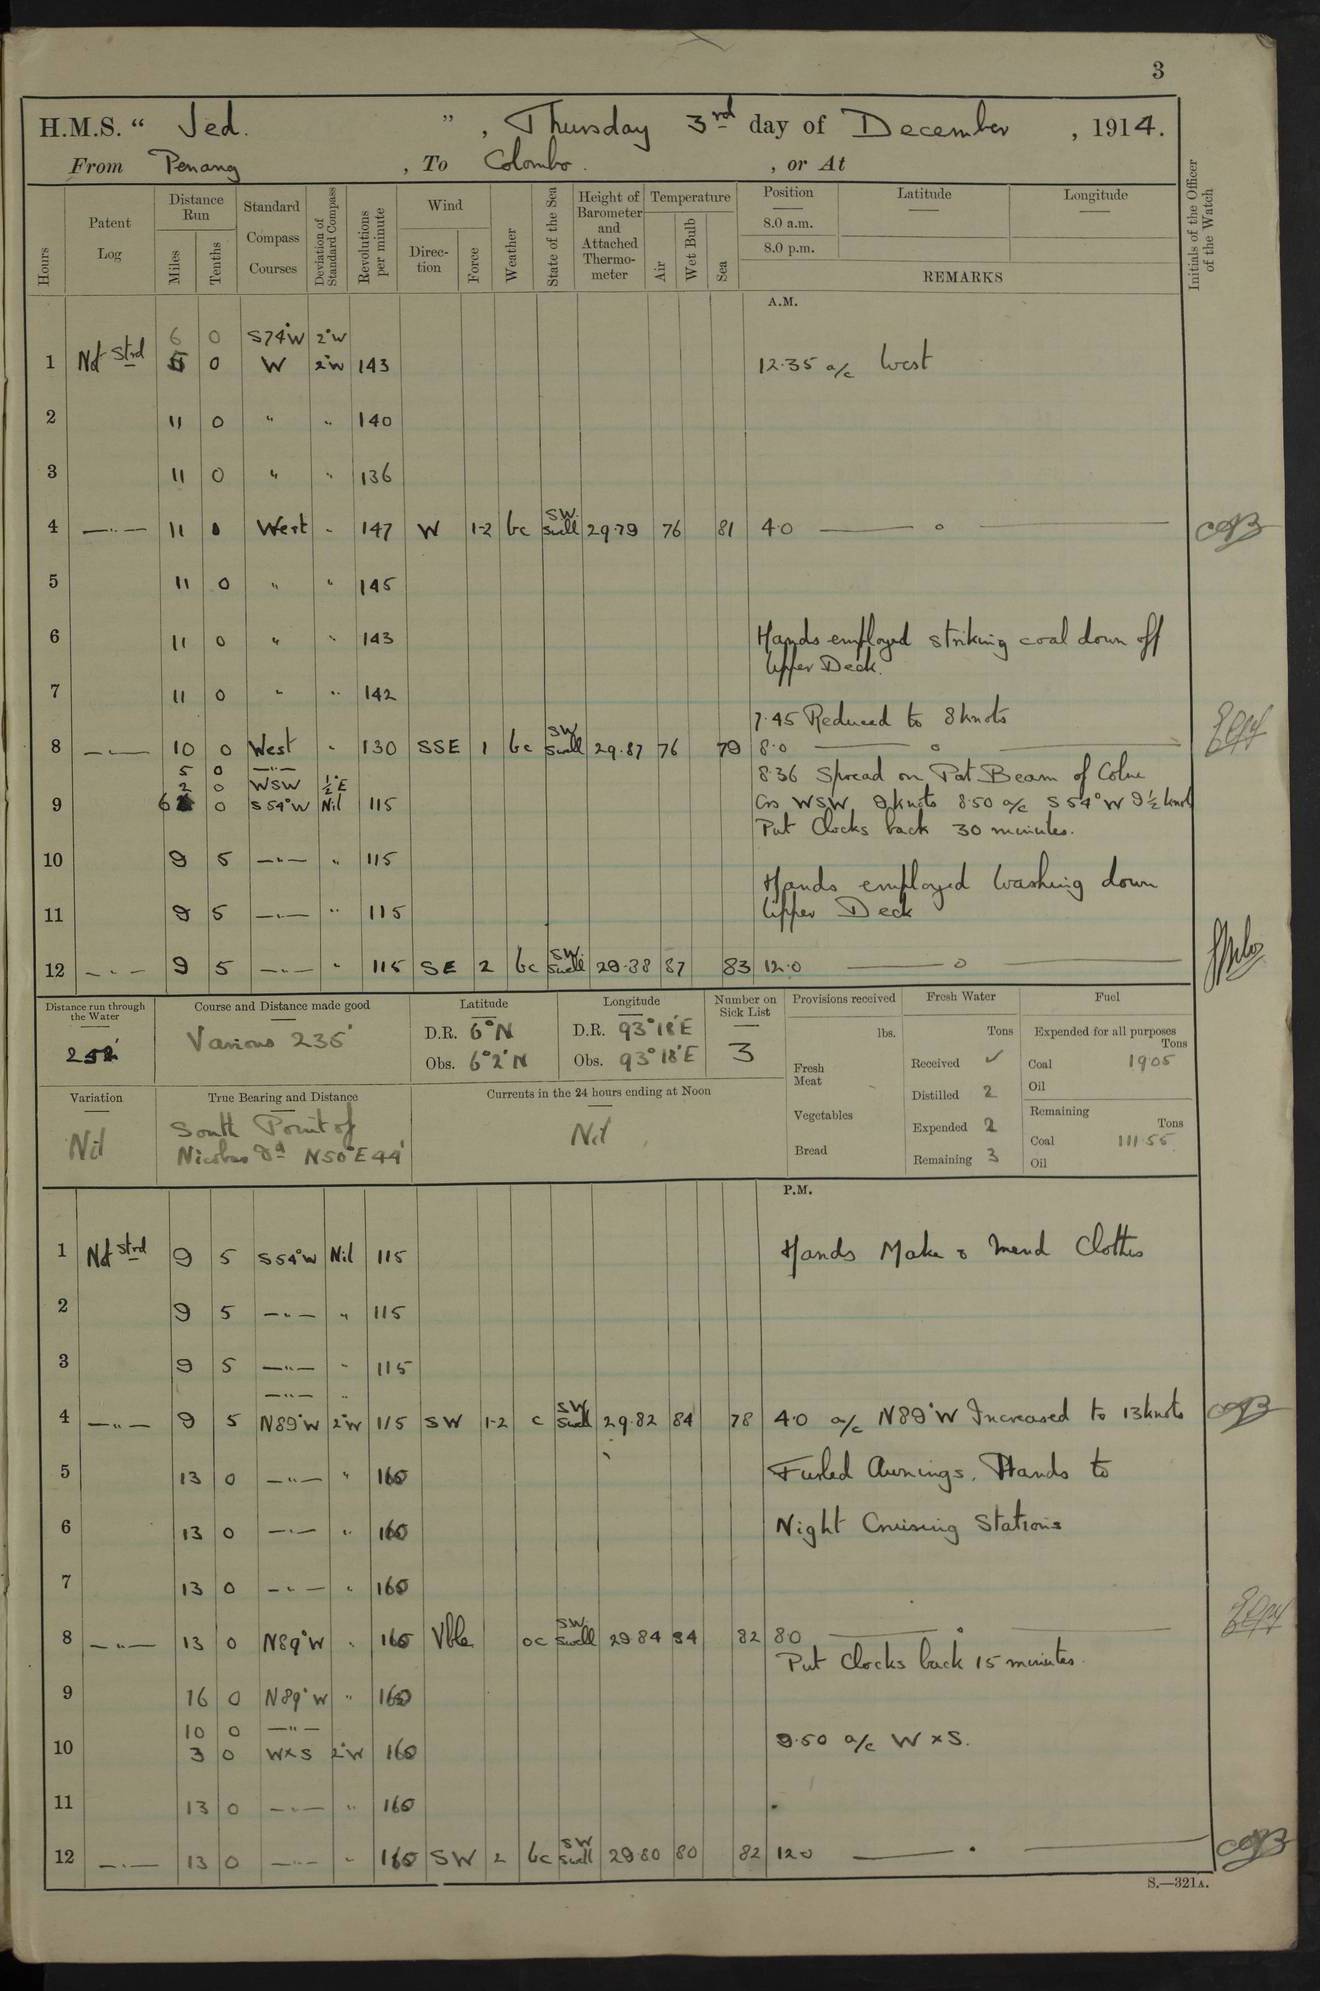 3
H.M.S. " Jed. ", Thursday 3rd day of December, 1914.
From Penang, To Colombo., or At
Hours
Patent Log
Distance Run
Miles
Tenths
Standard Compass Courses
Deviation of Standard Compass
Revolutions per minute
Wind
Direction
Force
Weather
State of the Sea
Height of Barometer and Attached Thermometer
Temperature
Air
Wet Bulb
Sea
Position
Latitude
Longitude
8.0 a.m.
8.0 p.m.
REMARKS
Initials of the Officer of the Watch
A.M.
6 0 S74°W 2°W
1 Not Strd 5 0 W 2°W 143 12.35 a/c West
2 11 0 " " 140
3 11 0 " " 136
4 —"— 11 0 West " 147 W 1-2 bc SW. swell 29.79 76 81 4.0 — o —
5 11 0 " " 145
6 11 0 " " 143 Hands employed striking coal down off
Upper Deck.
7 11 0 " " 142
7.45 Reduced to 8 knots
8 —"— 10 0 West " 130 SSE 1 bc SW swell 29.87 76 79 8.0 — o —
5 0 —"—
8.36 Spread on Pat Beam of Colne
2 0 WSW ½°E
9 6 0 S54°W Nil 115 Crs WSW 9 knots 8.50 a/c S54°W 9½ knots
Put Clocks back 30 minutes.
10 9 5 —"— " 115
Hands employed Washing down
11 9 5 —"— " 115 Upper Deck
12 —"— 9 5 —"— " 115 SE 2 bc SW. swell 29.88 87 83 12.0 — o —
Distance run through the Water
252'
Course and Distance made good
Various 236'
Latitude
D.R. 6°N
Obs. 6°2'N
Longitude
D.R. 93°18'E
Obs. 93°18'E
Number on Sick List
3
Provisions received
lbs.
Fresh Meat
Vegetables
Bread
Fresh Water
Tons
Received ✓
Distilled 2
Expended 2
Remaining 3
Fuel
Expended for all purposes
Tons
Coal 19.05
Oil
Remaining
Tons
Coal 111.55
Oil
Variation
Nil
True Bearing and Distance
South Point of
Nicobar Id N50°E 44'
Currents in the 24 hours ending at Noon
Nil
P.M.
1 Not Strd 9 5 S54°W Nil 115 Hands Make & Mend Clothes
2 9 5 —"— " 115
3 9 5 —"— " 115
—"— "
4 —"— 9 5 N89°W 2°W 115 SW 1-2 c SW swell 29.82 84 78 4.0 a/c N89°W Increased to 13 knots
5 13 0 —"— " 160 Furled Awnings. Hands to
6 13 0 —"— " 160 Night Cruising Stations
7 13 0 —"— " 160
8 —"— 13 0 N89°W " 160 Vble oc SW. swell 29.84 84 82 8.0 — o —
Put Clocks back 15 minutes.
9 16 0 N89°W " 160
10 0 —"—
10 3 0 W×S 2°W 160 9.50 a/c W×S.
11 13 0 —"— " 160
12 —"— 13 0 —"— " 160 SW 2 bc SW swell 29.80 80 82 12.0 — . —
S.—321A.